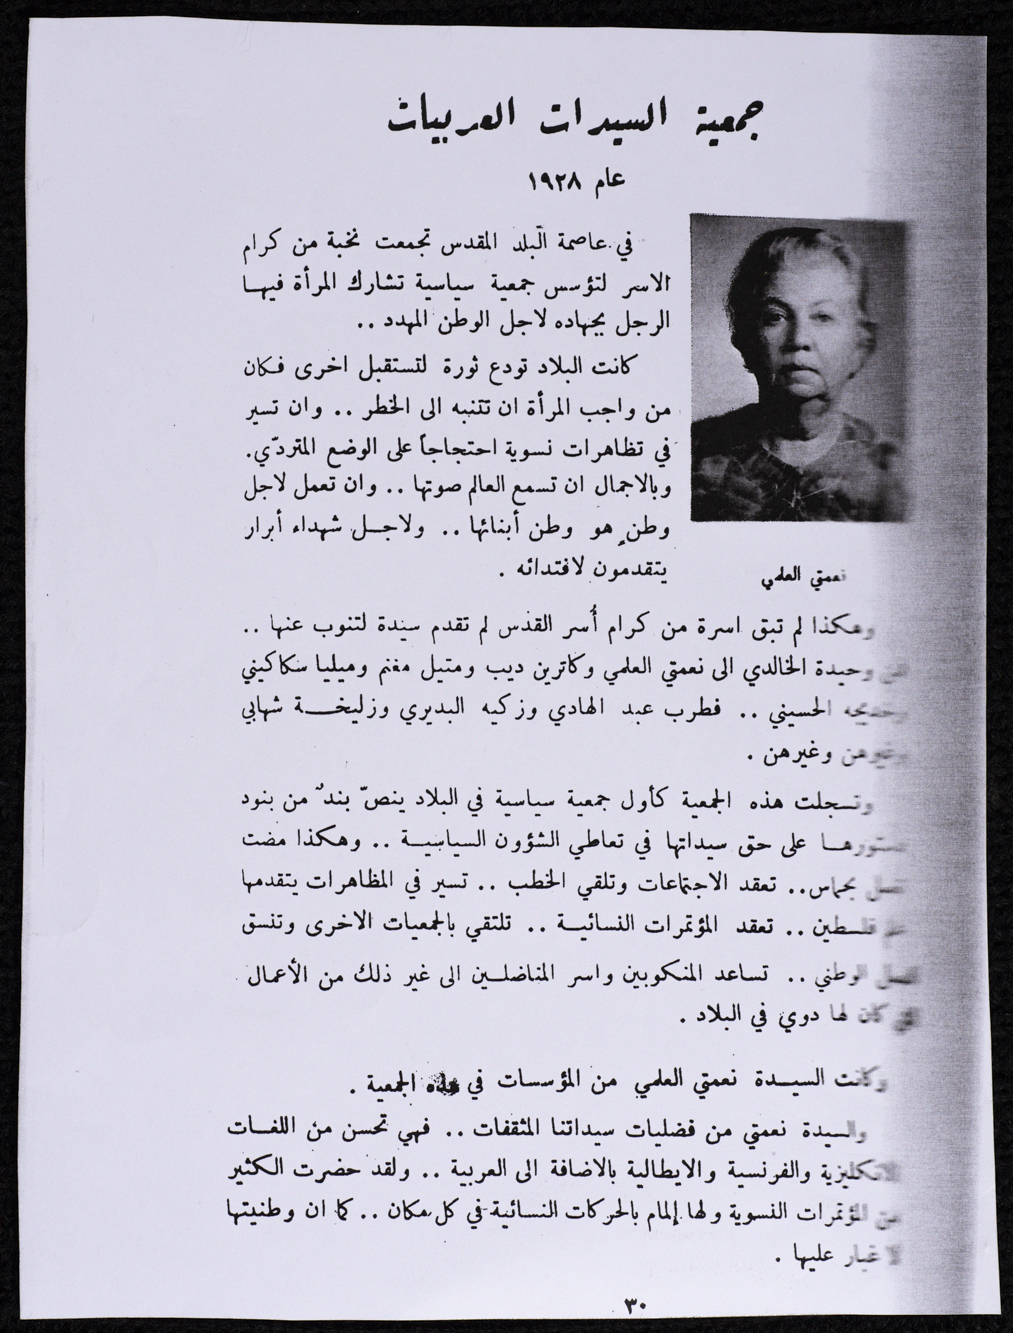 جمعية السيدات العربيات
عام ١٩٢٨
في عاصمة البلد المقدس تجمعت نخبة من كرام
الاسر لتؤسس جمعية سياسية تشارك المرأة فيهـا
الرجل بجهاده لاجل الوطن المهدد ..
كانت البلاد تودع ثورة لتستقبل اخرى فكان
من واجب المرأة ان تتنبه الى الخطر .. وان تسير
في تظاهرات نسوية احتجاجاً على الوضع المتردّي.
وبالاجمال ان تسمع العالم صوتها .. وان تعمل لاجل
وطنٍ هو وطن أبنائها .. ولاجـل شهداء أبرار
يتقدمون لافتدائه .
نعمتي العلمي
وهكذا لم تبق اسرة من كرام أُسر القدس لم تقدم سيدة لتنوب عنها ..
من وحيدة الخالدي الى نعمتي العلمي وكاترين ديب ومتيل مغنم وميليا سكاكيني
وخديجه الحسيني .. فطرب عبد الهادي وزكيه البديري وزليخـــة شهابي
وغيرهن وغيرهن .
وتسجلت هذه الجمعية كأول جمعية سياسية في البلاد ينصّ بندٌ من بنود
دستورهـا على حق سيداتها في تعاطي الشؤون السياسيـة .. وهكذا مضت
تعمل بحماس.. تعقد الاجتماعات وتلقي الخطب .. تسير في المظاهرات يتقدمها
علم فلسطين .. تعقد المؤتمرات النسائيـة .. تلتقي بالجمعيات الاخرى وتنسق
العمل الوطني .. تساعد المنكوبين واسر المناضلـين الى غير ذلك من الأعمال
التي كان لها دوي في البلاد .
وكانت السيـدة نعمتي العلمي من المؤسسات في هذه الجمعية .
والسيدة نعمتي من فضليات سيداتنا المثقفات .. فهي تحسن من اللغـات
الانكليزية والفرنسية والايطالية بالاضافة الى العربية .. ولقد حضرت الكثير
من المؤتمرات النسوية ولها إلمام بالحركات النسائية في كل مكان .. كما ان وطنيتها
لا غبار عليها .
٣٠